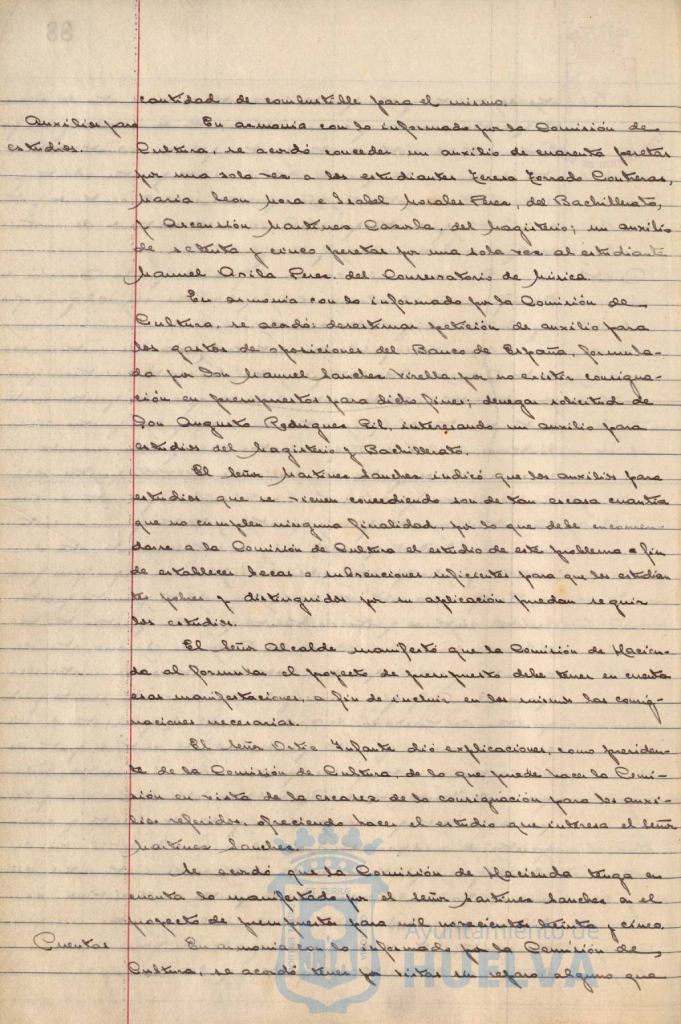 cantidad de combustible para el mismo.
Auxilios para
estudios.
En armonía con lo informado por la Comisión de
Cultura, se acordó conceder un auxilio de cuarenta pesetas
por una sola vez a los estudiantes Teresa Forrado Contreras,
María Leon Mora e Isabel Morales Perez, del Bachillerato,
y Ascensión Martinez Cazorla, del Magisterio; un auxilio
de setenta y cinco pesetas por una sola vez al estudiante
Manuel Avila Perez, del Conservatorio de Música.
En armonía con lo informado por la Comisión de
Cultura, se acordó: desestimar petición de auxilio para
los gastos de oposiciones del Banco de España, formula-
da por Don Manuel Sanchez Virella por no existir consigna-
ción en presupuestos para dicho fines; denegar solicitud de
Don Augusto Rodriguez Gil, interesando un auxilio para
estudios del Magisterio y Bachillerato.
El Señor Martinez Sanchez indicó que los auxilios para
estudios que se vienen concediendo son de tan escasa cuantía
que no cumplen ninguna finalidad, por lo que debe encomen-
darse a la Comisión de Cultura el estudio de este problema a fin
de establecer becas o subvenciones suficientes para que los estudian
tes pobres y distinguidos por su aplicación puedan seguir
los estudios.
El Señor Alcalde manifestó que la Comisión de Hacien-
da al formular el proyecto de presupuesto debe tener en cuenta
esas manifestaciones, a fin de incluir en los mismos las consig-
naciones necesarias.
El Señor Ortiz Infante dió explicaciones, como presiden-
te de la Comisión de Cultura, de lo que puede hacer la Comi-
sión en vista de la escasez de la consignación para los auxi-
lios referidos, ofreciendo hacer el estudio que interesa el Señor
Martinez Sanchez.
Se acordó que la Comisión de Hacienda tenga en
cuenta lo manifestado por el Señor Martinez Sanchez en el
proyecto de presupuestos para mil novecientos treinta y cinco.
Cuentas
En armonía con lo informado por la Comisión de
Cultura, se acordó tener por vistas sin reparo alguno que
Ayuntamiento de
HUELVA